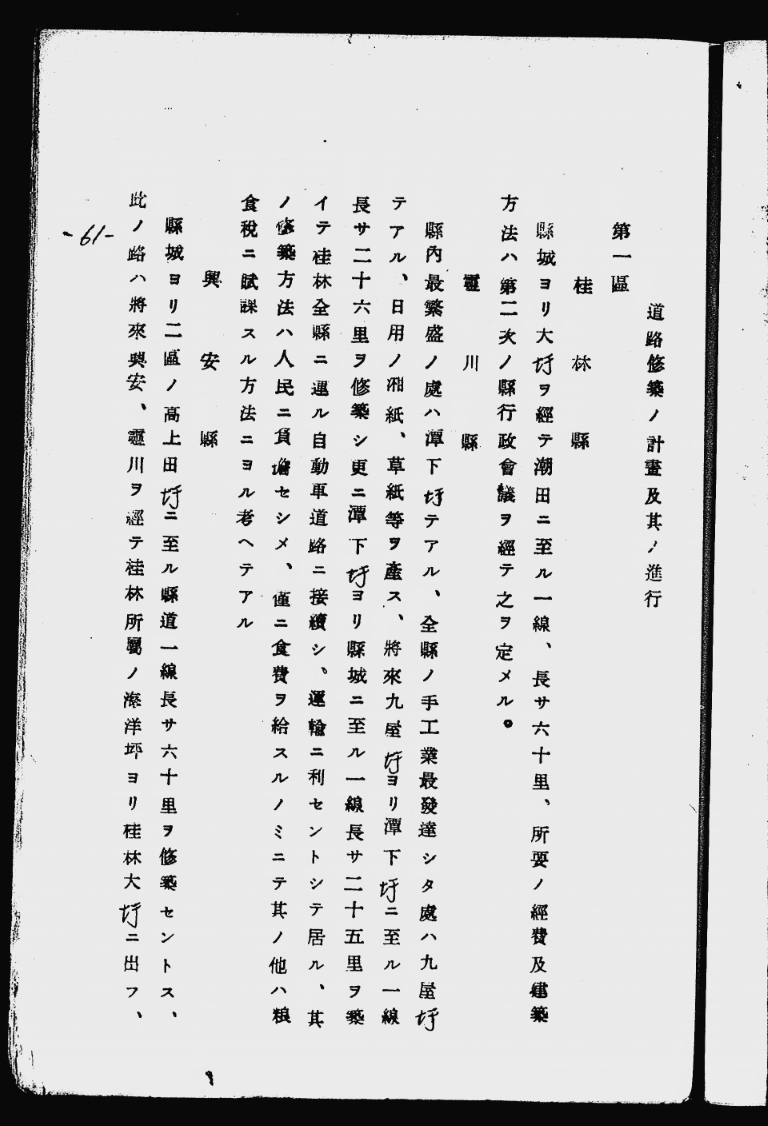 道路修築ノ計畫及其ノ進行
第一區
桂林縣
縣城ヨリ大圩ヲ經テ潮田ニ至ル一線、長サ六十里、所要ノ經費及建築
方法ハ第二次ノ縣行政會議ヲ經テ之ヲ定メル。
靈川縣
縣內最繁盛ノ處ハ潭下圩テアル、全縣ノ手工業最發達シタ處ハ九屋圩
テアル、日用ノ湘紙、草紙等ヲ產ス、將來九屋圩ヨリ潭下圩ニ至ル一線
長サ二十六里ヲ修築シ更ニ潭下圩ヨリ縣城ニ至ル一線長サ二十五里ヲ築
イテ桂林全縣ニ運ル自動車道路ニ接續シ、運輸ニ利セントシテ居ル、其
ノ修築方法ハ人民ニ負擔セシメ、僅ニ食費ヲ給スルノミニテ其ノ他ハ粮
食稅ニ賦課スル方法ニヨル考ヘテアル
興安縣
縣城ヨリ二區ノ高上田圩ニ至ル縣道一線長サ六十里ヲ修築セントス、
此ノ路ハ將來興安、靈川ヲ經テ桂林所屬ノ海洋坪ヨリ桂林大圩ニ出フ、
-61-